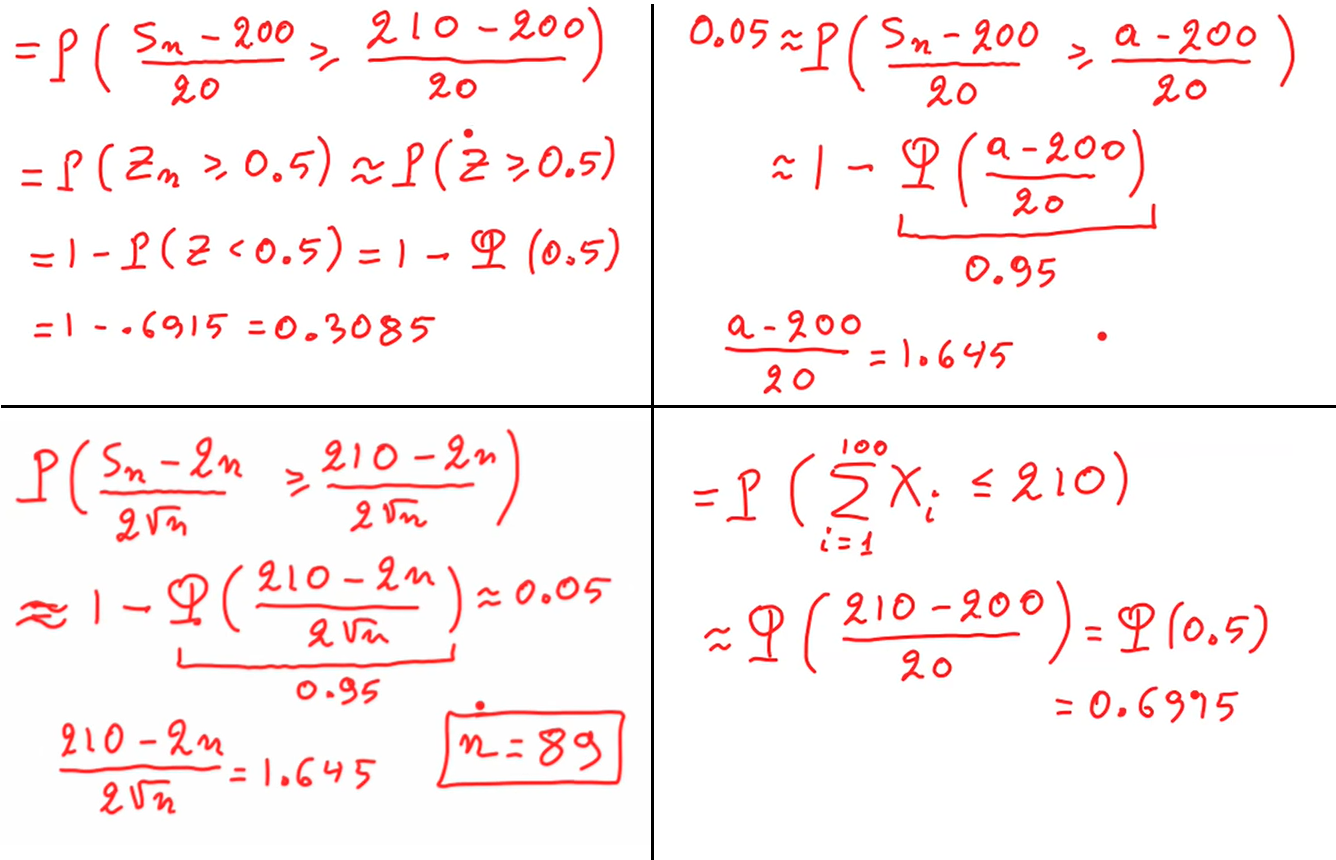 = P( (Sn - 200)/20 ≥ (210 - 200)/20 )
= P(Zn ≥ 0.5) ≈ P(Z ≥ 0.5)
= 1 - P(Z < 0.5) = 1 - Φ(0.5)
= 1 - .6915 = 0.3085
0.05 ≈ P( (Sn - 200)/20 ≥ (a - 200)/20 )
≈ 1 - Φ( (a - 200)/20 )
0.95
(a - 200)/20 = 1.645
P( (Sn - 2n)/(2√n) ≥ (210 - 2n)/(2√n) )
≈ 1 - Φ( (210 - 2n)/(2√n) ) ≈ 0.05
0.95
(210 - 2n)/(2√n) = 1.645
n = 89
= P( ∑_{i=1}^{100} Xi ≤ 210 )
≈ Φ( (210 - 200)/20 ) = Φ(0.5)
= 0.6915